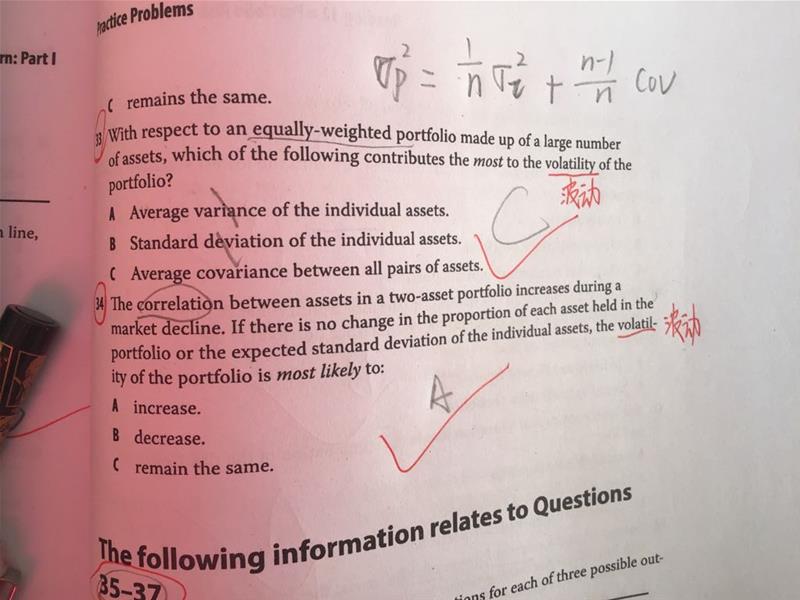 Practice Problems
rn: Part I
σp² = 1/n σi² + n-1/n Cov
C remains the same.
33 With respect to an equally-weighted portfolio made up of a large number
of assets, which of the following contributes the most to the volatility of the
portfolio?
波动
A Average variance of the individual assets.
C
B Standard deviation of the individual assets.
n line,
C Average covariance between all pairs of assets.
34 The correlation between assets in a two-asset portfolio increases during a
market decline. If there is no change in the proportion of each asset held in the
portfolio or the expected standard deviation of the individual assets, the volatil-
波动
ity of the portfolio is most likely to:
A
A increase.
B decrease.
C remain the same.
The following information relates to Questions
35–37
tions for each of three possible out-